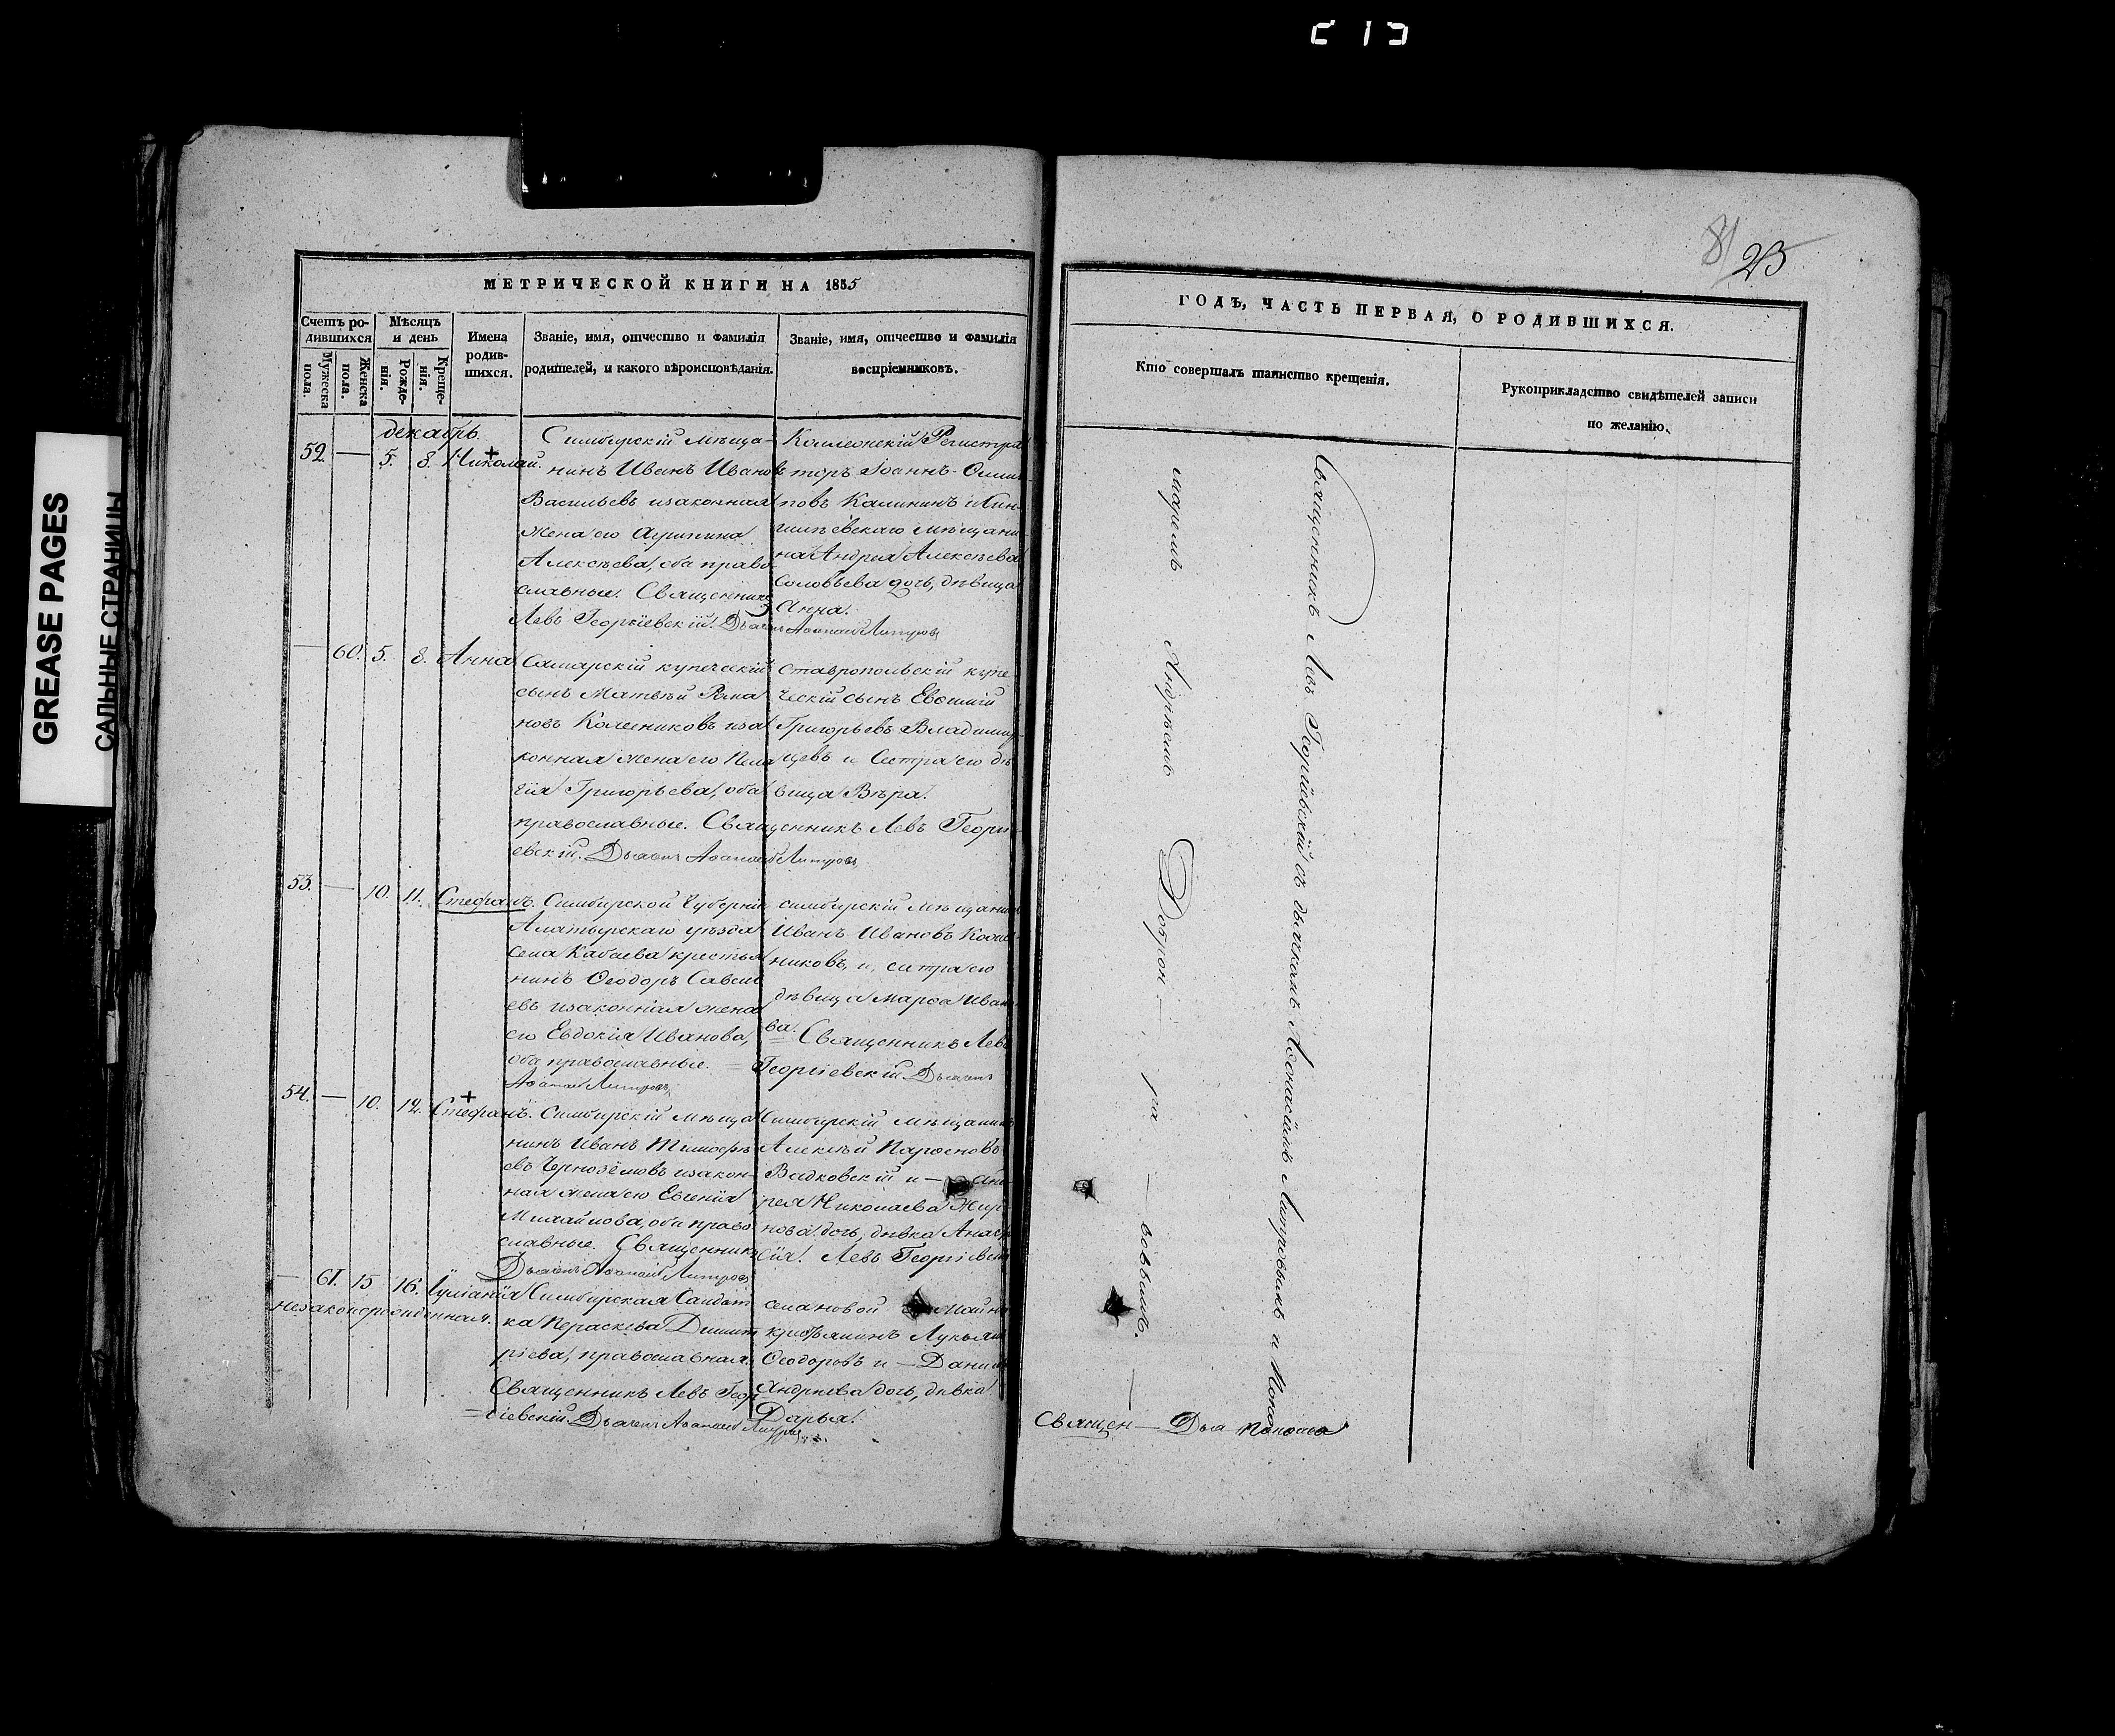 213
GREASE PAGES
САЛЬНЫЕ СТРАНИЦЫ
МЕТРИЧЕСКОЙ КНИГИ НА 1835
Счетъ ро-
дившихся
Мужеска
пола.
Женска
пола.
Мѣсяцъ
и день
Рожде-
нія.
Креще-
нія.
Имена
родив-
шихся.
Званіе, имя, отчество и фамилія
родителей, и какого вѣроисповѣданія.
Званіе, имя, отчество и фамилія
воспріемниковъ.
декабрь.
52. — 5. 8. Николай.
Симбирскій мѣща-
нинъ Иванъ Ивановъ
Васильевъ и законная
жена его
Алексѣева, оба право
славные. Священникъ
Левъ Георгіевскій. Дьячекъ
Регистра
торъ Іоаннъ
повъ Калининъ и
мѣщани
на Андрея Алексѣева
Соловьева дочь, дѣвица
Анна.
— 60. 5. 8. Анна
Самарскій купеческій
сынъ Матвѣй Рома
новъ Колесниковъ и за
конная жена его Пела
гія Григорьева, оба
православные. Священникъ Левъ Георгі
евскій. Дьячекъ
Ставропольскій купе
ческій сынъ Евфимій
Григорьевъ Владимір
цевъ и Сестра его дѣ
вица Вѣра.
53. — 10. 11. Стефанъ.
Симбирской Губерніи
Алатырскаго уѣзда
села Кабаева крестья
нинъ Ѳеодоръ Савель
евъ и законная жена
его Евдокія Иванова,
оба православные. =
симбирскій мѣщанинъ
Иванъ Ивановъ
никовъ, и, сестра его
дѣвица Марѳа Ивано
ва. = Священникъ Левъ
Георгіевскій Дьячекъ
54. — 10. 12. Стефанъ.
Симбирскій мѣща
нинъ Иванъ Тимоѳѣ
евъ Чернозёмовъ и закон-
ная жена его Евгенія
Михайлова, оба право
славные. Священникъ
Симбирскій мѣщанинъ
Алексѣй Парѳеновъ
Вадковскій и —
рея Николаева Жир
нова дочь, дѣвка Анаста
сія. Левъ Георгіевскій
— 61. 15 16. Іуліанія
незаконорожденная.
Симбирская Солдат
ка Параскева Димит
ріева, православная.
Священникъ Левъ Геор
гіевскій. Дьячекъ
села новой Майны
крестьянинъ Лукьянъ
Ѳеодоровъ и — Данилы
Андреева дочь, дѣвка
Дарья.
81
23
ГОДЪ, ЧАСТЬ ПЕРВАЯ, О РОДИВШИХСЯ.
Кто совершалъ таинство крещенія.
Рукоприкладство свидѣтелей записи
по желанію.
Священникъ Левъ Георгіевскій съ дьячкомъ Аѳонасіемъ
и Поно
маремъ Андрѣемъ Доброн — ра — вовымъ. —
Священ — Дья